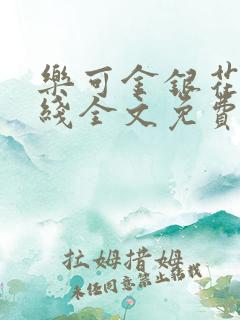 樂可金銀花
綫全文免費
拉姆措姆
未经同意禁止转载